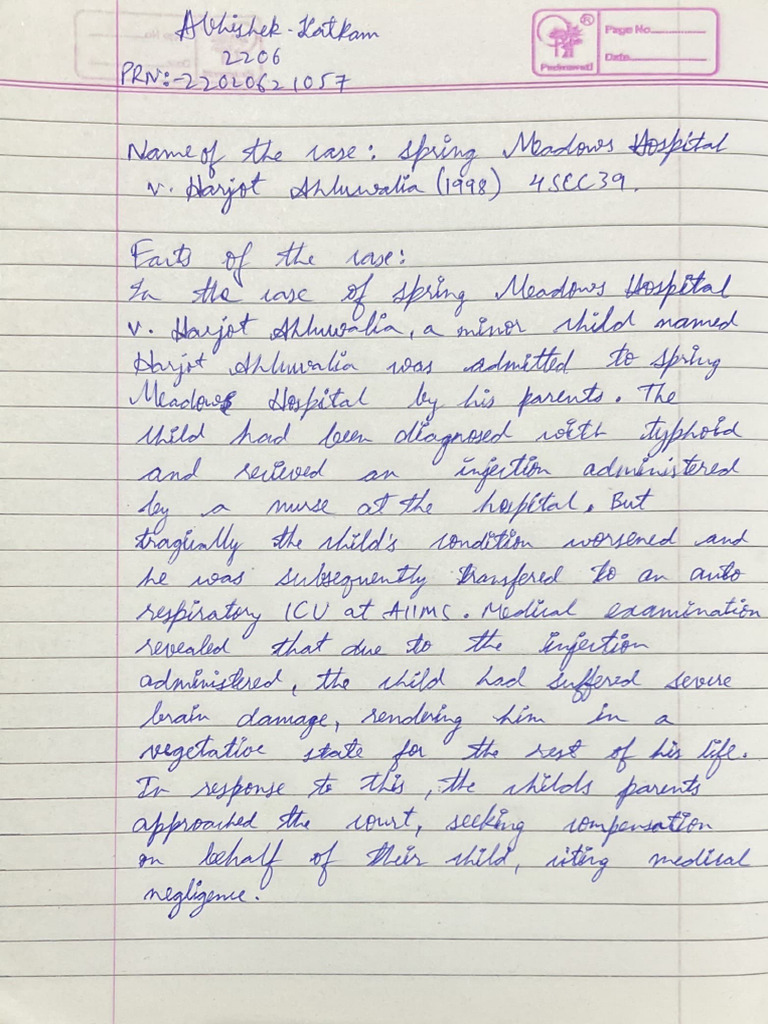 Abhishek - Katkam
2206
PRN:- 22020621057
Page No.
Date
Padmavati
Name of the case: Spring Meadows Hospital
v. Harjot Ahluwalia (1998) 4SCC39.
Facts of the case:
In the case of Spring Meadows Hospital
v. Harjot Ahluwalia, a minor child named
Harjot Ahluwalia was admitted to Spring
Meadows Hospital by his parents. The
child had been diagnosed with typhoid
and recieved an injection administered
by a nurse at the hospital. But
tragically the child's condition worsened and
he was subsequently transfered to an auto
respiratory ICU at AIIMS. Medical examination
revealed that due to the injection
administered, the child had suffered severe
brain damage, rendering him in a
vegetative state for the rest of his life.
In response to this, the childs parents
approached the court, seeking compensation
on behalf of their child, citing medical
negligence.